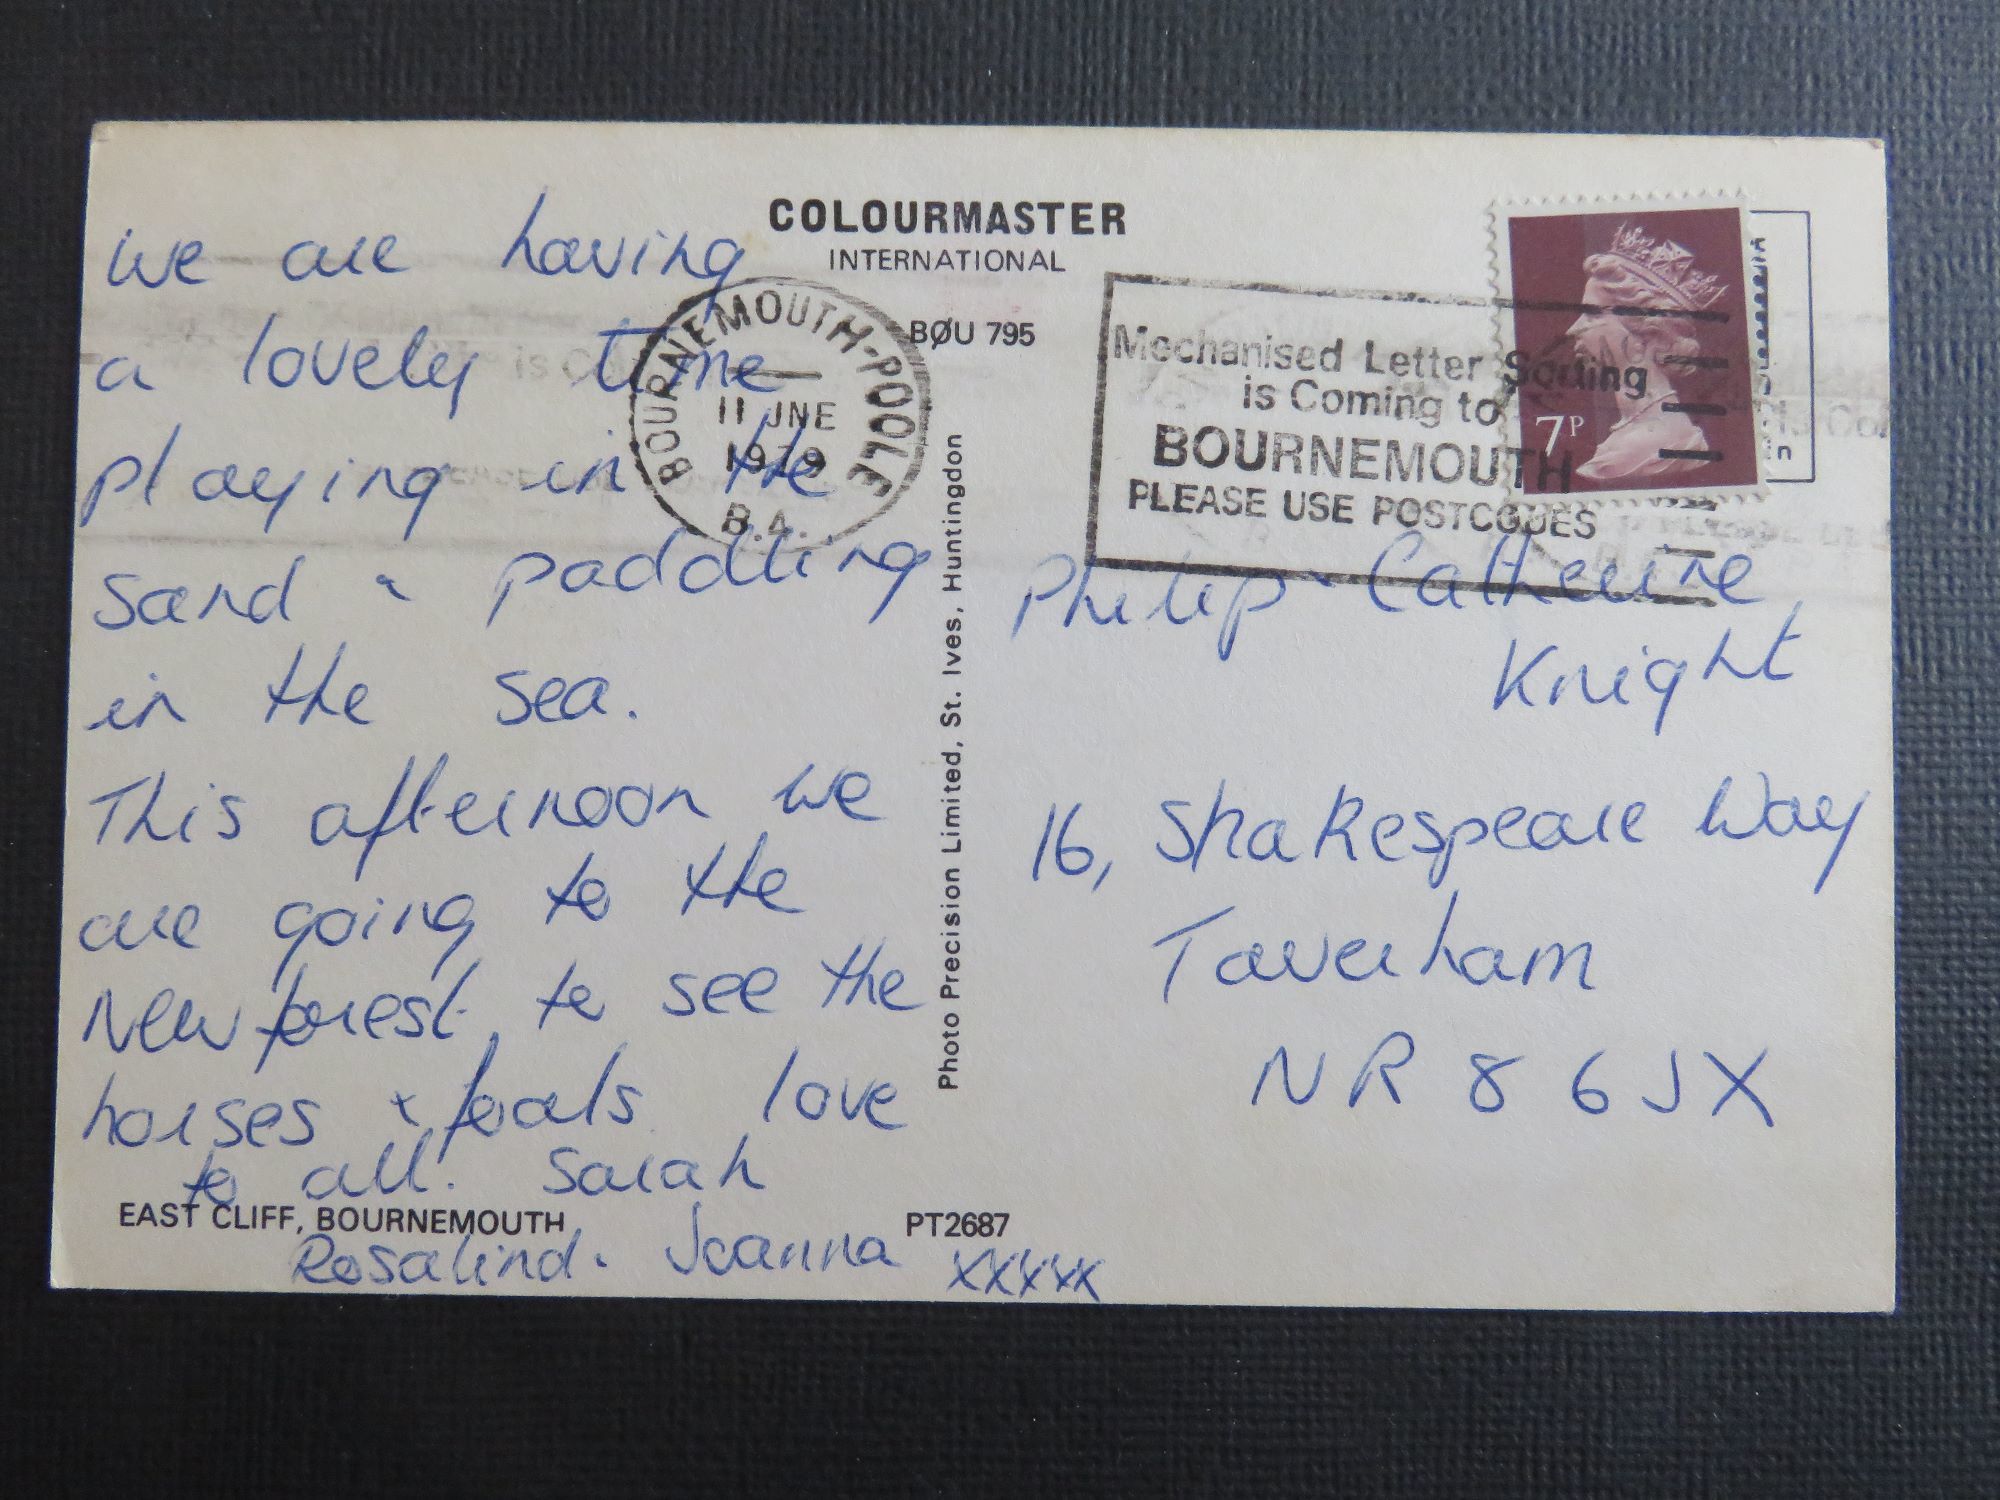 We are having
a lovely time
playing in the
sand & paddling
in the sea.
This afternoon we
are going to the
New forest to see the
horses & foals love
to all. Sarah
Rosalind & Joanna xxxxx
EAST CLIFF, BOURNEMOUTH
PT2687
COLOURMASTER
INTERNATIONAL
BØU 795
Photo Precision Limited, St. Ives, Huntingdon
BOURNEMOUTH-POOLE
11 JNE
1979
B.A.
Mechanised Letter Sorting
is Coming to
BOURNEMOUTH
PLEASE USE POSTCODES
7P
Philip & Catherine
Knight
16, Shakespeare Way
Taverham
NR8 6JX